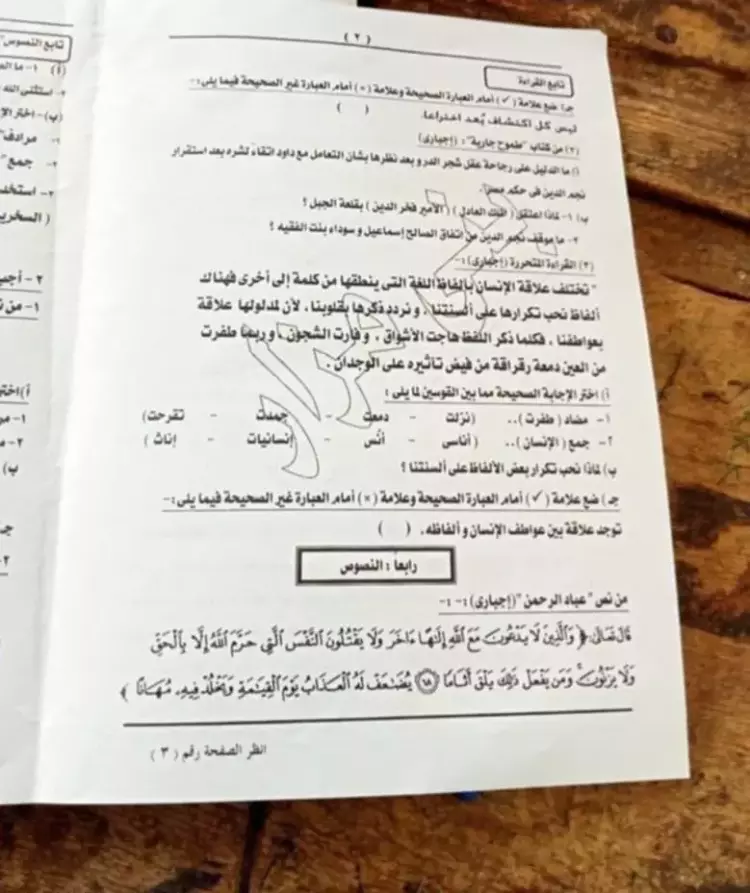 (٢)
تابع القراءة
جـ) ضع علامة (✓) أمام العبارة الصحيحة وعلامة (×) أمام العبارة غير الصحيحة فيما يلى:-
ليس كل اكتشاف يُعد اختراعا. (   )
(٢) من كتاب "طموح جارية": (إجبارى)
أ) ما الدليل على رجاحة عقل شجر الدر وبعد نظرها بشأن التعامل مع داود اتقاءً لشره بعد استقرار
نجم الدين فى حكم مصر؟
ب) ١- لماذا اعتقل (الملك العادل) (الأمير فخر الدين) بقلعة الجبل؟
٢- ما موقف نجم الدين من اتفاق الصالح إسماعيل و سوداء بنت الفقيه؟
(٣) القراءة المتحررة (إجبارى):-
" تختلف علاقة الإنسان بألفاظ اللغة التى ينطقها من كلمة إلى أخرى فهناك
ألفاظ نحب تكرارها على ألسنتنا، و نردد ذكرها بقلوبنا، لأن لمدلولها علاقة
بعواطفنا، فكلما ذكر اللفظ هاجت الأشواق، و فارت الشجون، و ربما طفرت
من العين دمعة رقراقة من فيض تأثيره على الوجدان.
أ) اختر الإجابة الصحيحة مما بين القوسين لما يلى:
١- مضاد (طفرت).. (نزلت - دمعت - جمدت - تقرحت)
٢- جمع (الإنسان).. (أناسى - أنس - إنسانيات - إناث)
ب) لماذا نحب تكرار بعض الألفاظ على ألسنتنا؟
جـ) ضع علامة (✓) أمام العبارة الصحيحة وعلامة (×) أمام العبارة غير الصحيحة فيما يلى:-
توجد علاقة بين عواطف الإنسان و ألفاظه. (   )
رابعاً: النصوص
من نص "عباد الرحمن" (إجبارى):-
قال تعالى: ﴿ وَالَّذِينَ لَا يَدْعُونَ مَعَ اللَّهِ إِلَٰهًا ءَاخَرَ وَلَا يَقْتُلُونَ النَّفْسَ الَّتِي حَرَّمَ اللَّهُ إِلَّا بِالْحَقِّ
وَلَا يَزْنُونَ وَمَن يَفْعَلْ ذَٰلِكَ يَلْقَ أَثَامًا ﴿٦٨﴾ يُضَاعَفْ لَهُ الْعَذَابُ يَوْمَ الْقِيَامَةِ وَيَخْلُدْ فِيهِ مُهَانًا ﴾
انظر الصفحة رقم (٣)
تابع النصوص
(أ) ١- ما
٢- استثنى الله
(ب) - اختر
مرادف"
جمع"